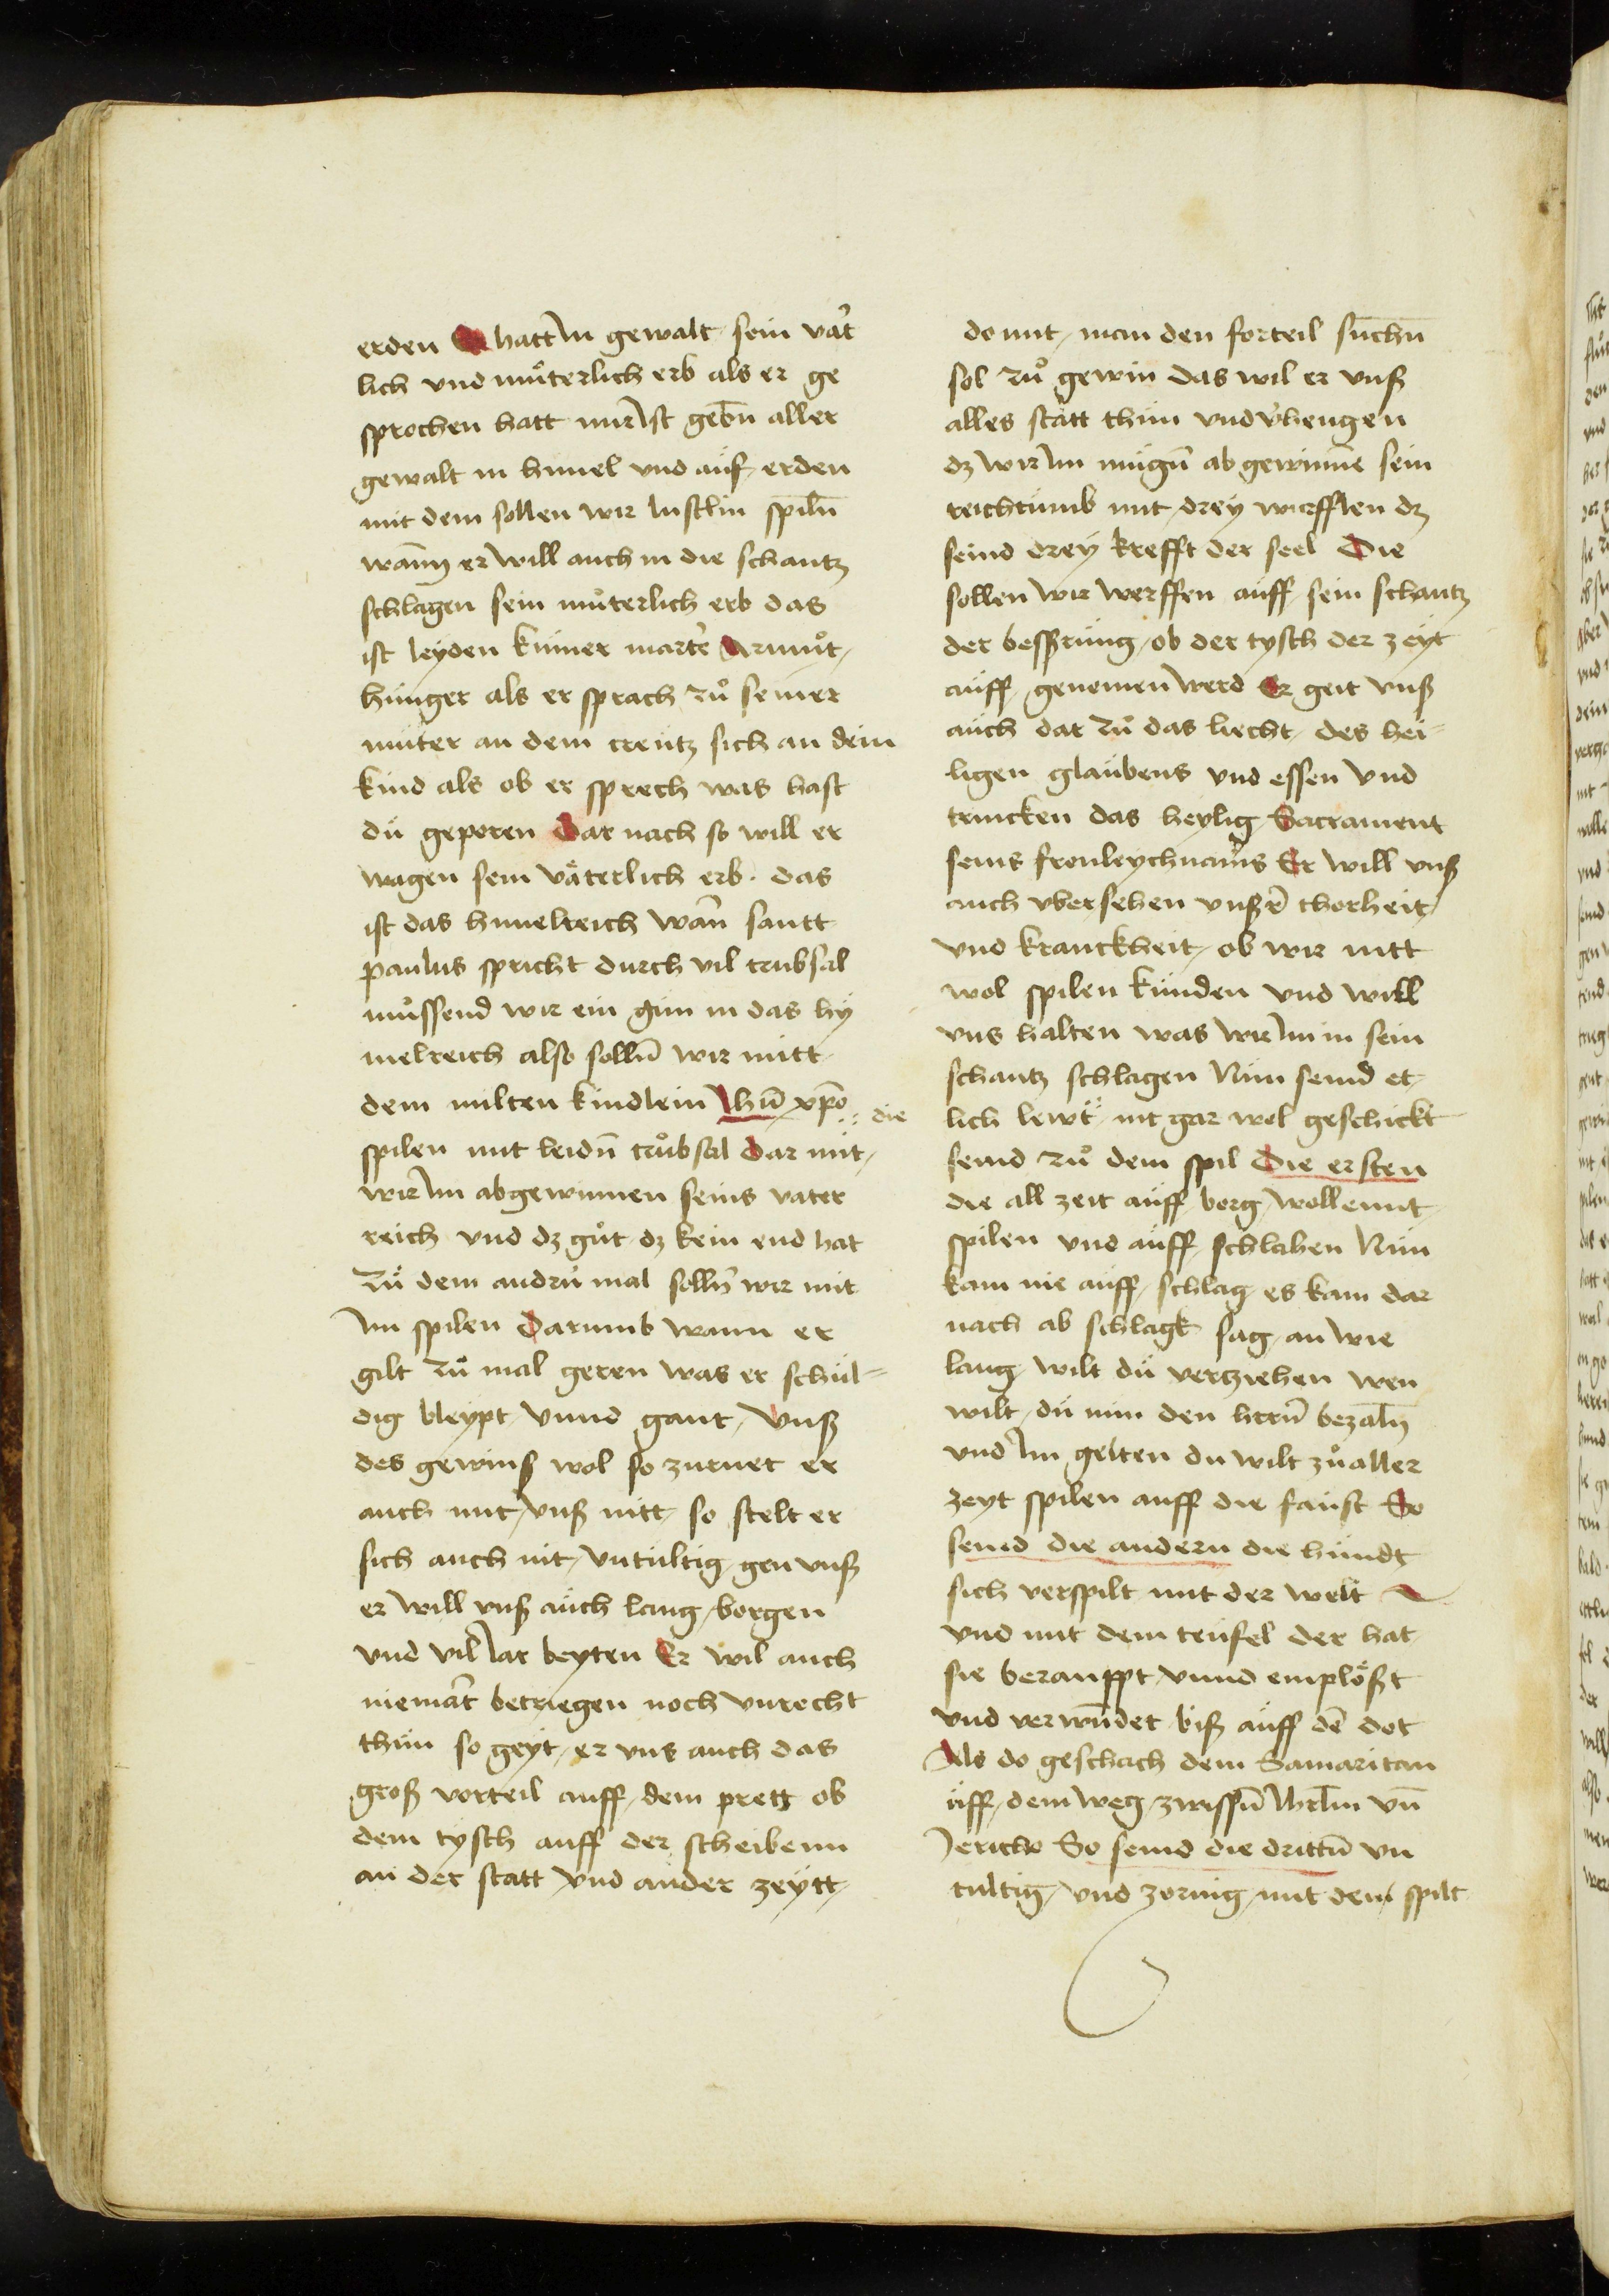 erden Er hatt Im gewalt sein vat̄
lich vnd mu̍terlich erb als er ge
sprochen hatt mir Ist gebn̄ aller
gewalt in himel vnd auf erden
mit dem sollen wir lustlin spiln̄
wann̄ er will auch in die schantz
schlagen sein můterlich erb das
ist leyden kumer marter̄ Armůt
hunger als er sprach zů seiner
muter an dem creutz sich an dein
kind als ob er sprech was hast
du geporen Dar nach so will er
wagen sein väterlich erb. das
ist das himelreich wan̄ santt
paulus spricht durch vil trubsal
můssend wir ein gun in das hy
melreich also solln̄ wir mitt
dem milten kindlein Ihū xp̄o die
spilen mit leidn̄ trůbsal Dar mit
wir Im abgewinnen seins vater
reich vnd dz gůt dz kein end hat
Zů dem andrn̄ mal solln̄ wir mit
Im spilen Darumb wann er
gilt zů mal geren was er schul=
dig bleypt vnnd gant vnß
des gewins wol so zurnet er
auch mit vnß nitt so stelt er
sich auch nit vntultig gen vnß
er will vnß auch lang borgen
vnd vil Iar beyten Er wil auch
niemāt betriegen noch vnrecht
thun so geyt er vns auch das
groß vorteil auff dem prett ob
dem tysch auff der scheibenn
an der statt vnd ander zeytt
do mit man den forteil sūchn̄
sol zů gewin das wil er vnß
alles statt thun vnd v̄hengen
dz wir Im mugn̄ ab gewinnē sein
reichtumb mit drey wurfflen dz
seind drey krefft der seel Die
sollen wir werffen auff sein schantz
der bessrung ob der tysch der zeyt
auff genomen werd Er geit vnß
auch dar zů das liecht des hei=
ligen glaubens vnd essen vnd
trincken das heylig Sacrament
seins fronleychnams Er will vnß
auch vbersehen vnßr̄ thorheit
vnd kranckheit ob wir nitt
wol spilen kunden vnd will
vns halten was wir Im in sein
schantz schlagen Nun seind et
lich lewt nit gar wol geschickt
seind zů dem spil Die ersten
die all zeit auff borg wollennt
spilen vnd auff schlahen Nun
kam nie auff schlag es kam dar
nach ab schlagk sag an wie
lang wilt du verziehen wen
wilt du nun den herrn̄ bezaln̄
vnd Im gelten du wilt zů aller
zeyt spilen auff die faust So
seind die andern die hundt
sich verspilt mit der welt
vnd mit dem teufel der hat
sie berauppt vnnd emplößt
vnd verwn̄det biß auff dē dot
Als do geschach dem Samaritan
uff dem weg zwissn̄ Ihrl̄m vn̄
Jericho So seind die drittn̄ vn
tultig vnd zornig mit dem spilt